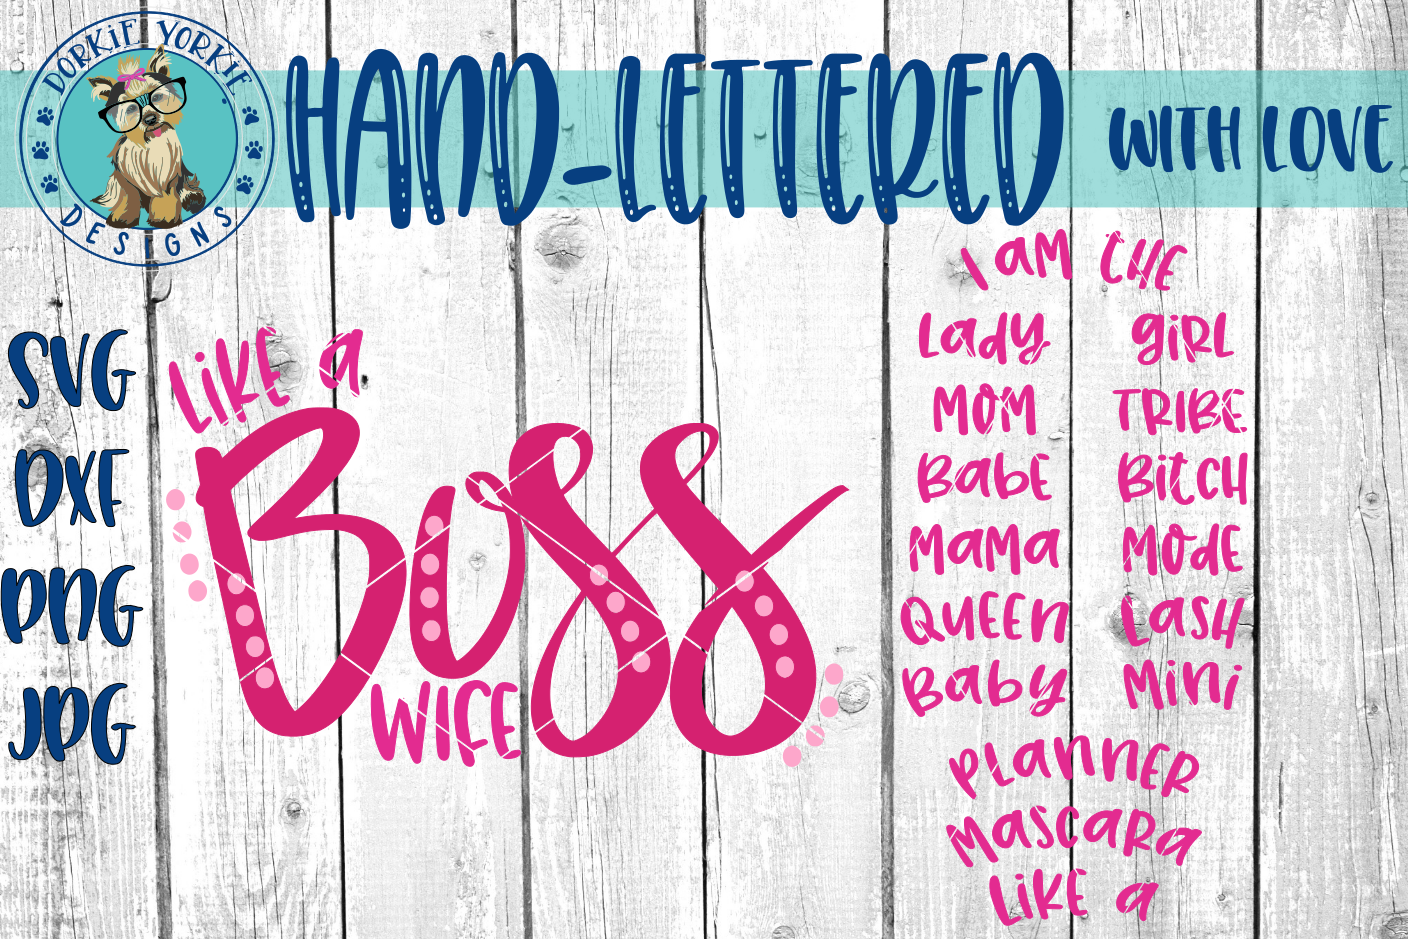 DORKiF YORKiE
DESIGNS
HAND-LETTERED
WITH LOVE
SVG
DXF
PNG
JPG
LiKE a
Boss
WIFE
I aM THE
Lady
giRL
MOM
TRIBE
BabE
BitCH
MaMa
MOdE
QUEEn
LaSH
Baby
Mini
PLannER
MaSCaRa
LiKE a